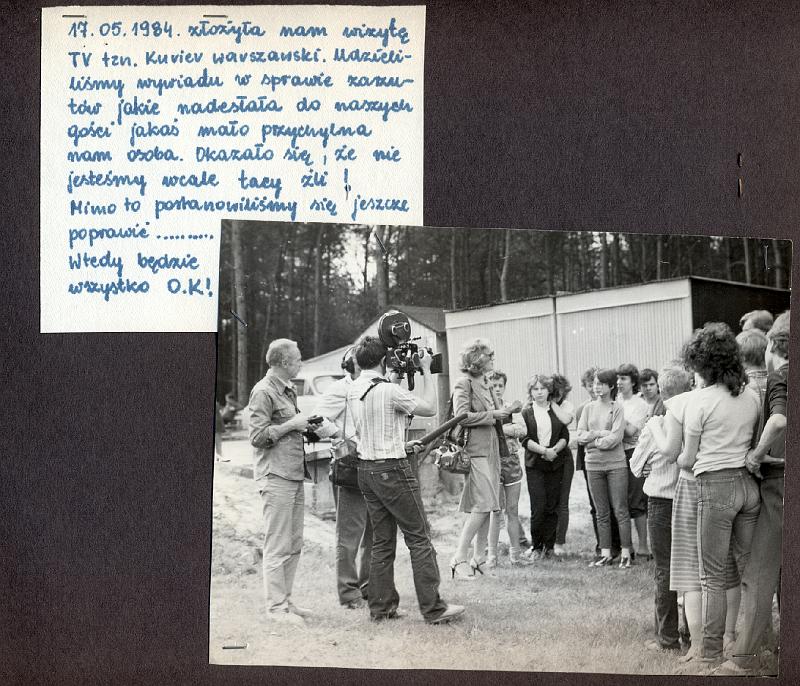 17.05.1984. złożyła nam wizytę
TV tzn. Kurier warszawski. Udzieli-
liśmy wywiadu w sprawie zarzu-
tów jakie nadesłała do naszych
gości jakaś mało przychylna
nam osoba. Okazało się, że nie
jesteśmy wcale tacy źli!
Mimo to postanowiliśmy się jeszcze
poprawić ..........
Wtedy będzie
wszystko O.K!